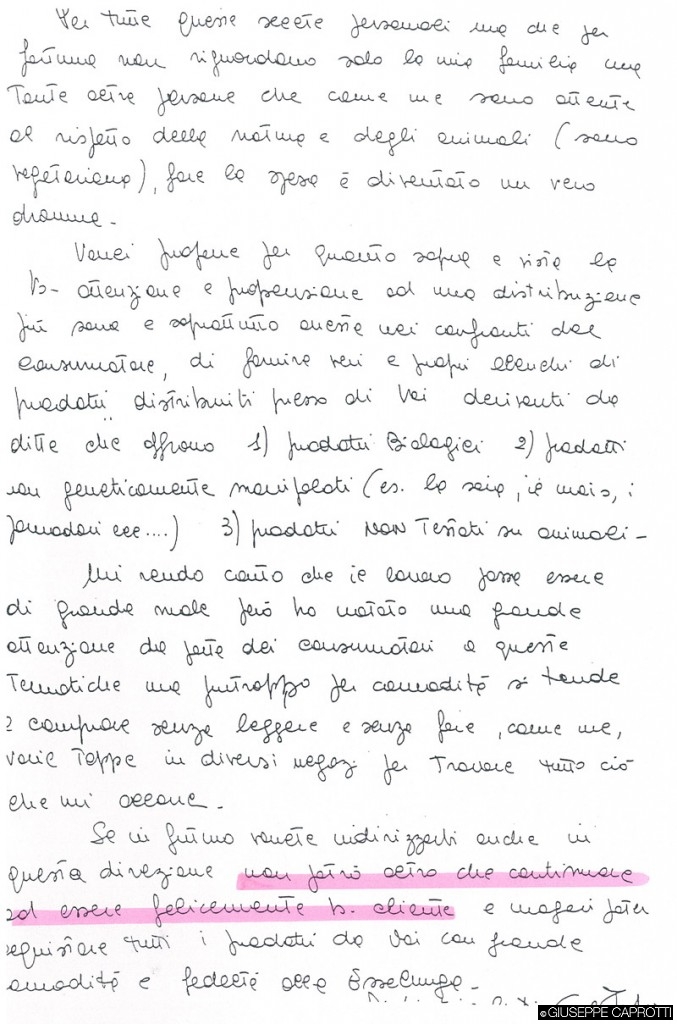 Per tutte queste scelte personali ma che per
fortuna non riguardano solo la mia famiglia ma
tante altre persone che come me sono attente
al rispetto della natura e degli animali (sono
vegetariana), fare la spesa è diventato un vero
dramma -
Vorrei proporre per quanto sopra e vista la
Vs - attenzione e propensione ad una distribuzione
più sana e soprattutto onesta nei confronti del
consumatore, di fornire veri e propri elenchi di
prodotti distribuiti presso di Voi derivanti da
ditte che offrono 1) prodotti Biologici 2) prodotti
non geneticamente manipolati (es. la soia, il mais, i
pomodori ecc....) 3) prodotti NON Testati su animali -
Mi rendo conto che il lavoro possa essere
di grande mole però ho notato una grande
attenzione da parte dei consumatori a queste
Tematiche ma purtroppo per comodità si tende
a comprare senza leggere e senza fare, come me,
varie Tappe in diversi negozi per Trovare tutto ciò
che mi occorre -
Se in futuro vorrete indirizzarvi anche in
questa direzione non potrò altro che continuare
ad essere felicemente Vs. cliente e magari poter
acquistare tutti i prodotti da Voi con grande
comodità e fedeltà alla Esselunga -
©GIUSEPPE CAPROTTI